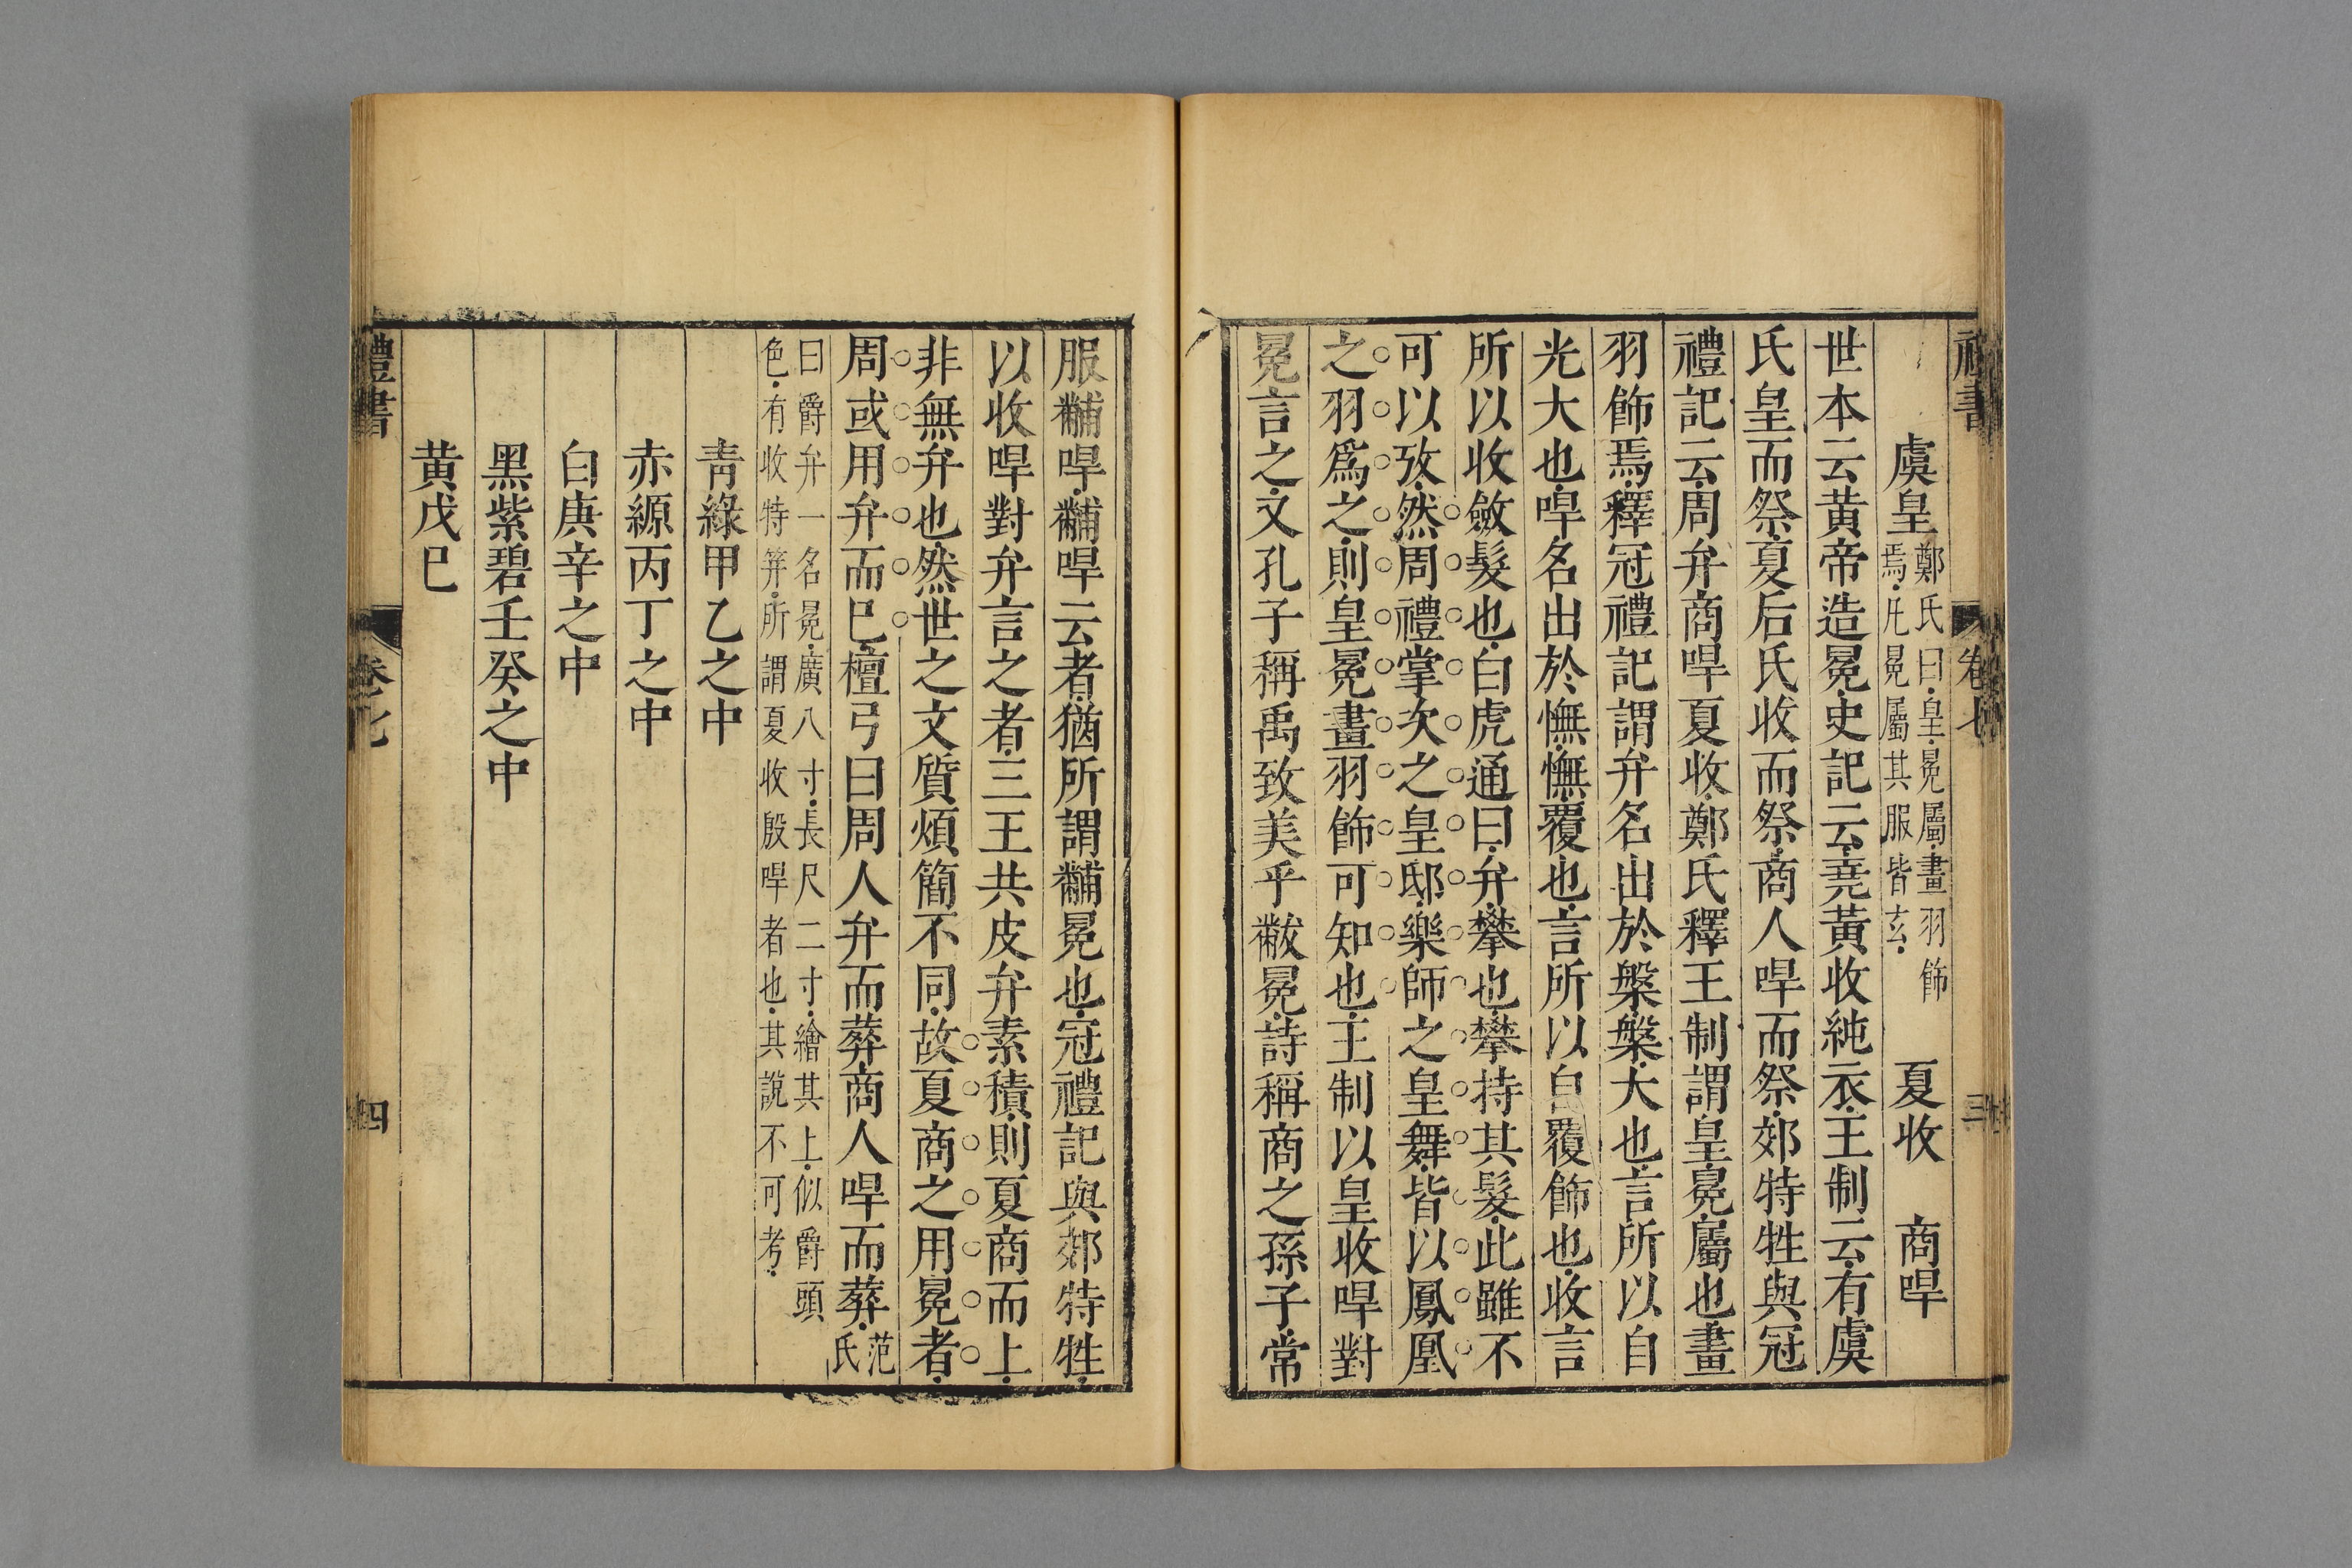 禮書 卷七 三
虞皇 鄭氏曰皇冕屬畫羽飾焉凡冕屬其服皆玄 夏收 商冔
世本云黃帝造冕史記云堯黃收純衣王制云有虞
氏皇而祭夏后氏收而祭商人冔而祭郊特牲與冠
禮記云周弁商冔夏收鄭氏釋王制謂皇冕屬也畫
羽飾焉釋冠禮記謂弁名出於槃槃大也言所以自
光大也冔名出於幠幠覆也言所以自覆飾也收言
所以收斂髮也白虎通曰弁攀也攀持其髮此雖不
可以攷然周禮掌次之皇邸樂師之皇舞皆以鳳凰
之羽爲之則皇冕畫羽飾可知也王制以皇收冔對
冕言之文孔子稱禹致美乎黻冕詩稱商之孫子常
服黼冔黼冔云者猶所謂黼冕也冠禮記與郊特牲
以收冔對弁言之者三王共皮弁素積則夏商而上
非無弁也然世之文質煩簡不同故夏商之用冕者
周或用弁而已檀弓曰周人弁而葬商人冔而葬 范氏
曰爵弁一名冕廣八寸長尺二寸繒其上似爵頭
色有收特笄所謂夏收殷冔者也其說不可考
青綠甲乙之中
赤縓丙丁之中
白庚辛之中
黑紫碧壬癸之中
黃戊巳
禮書 卷七 四